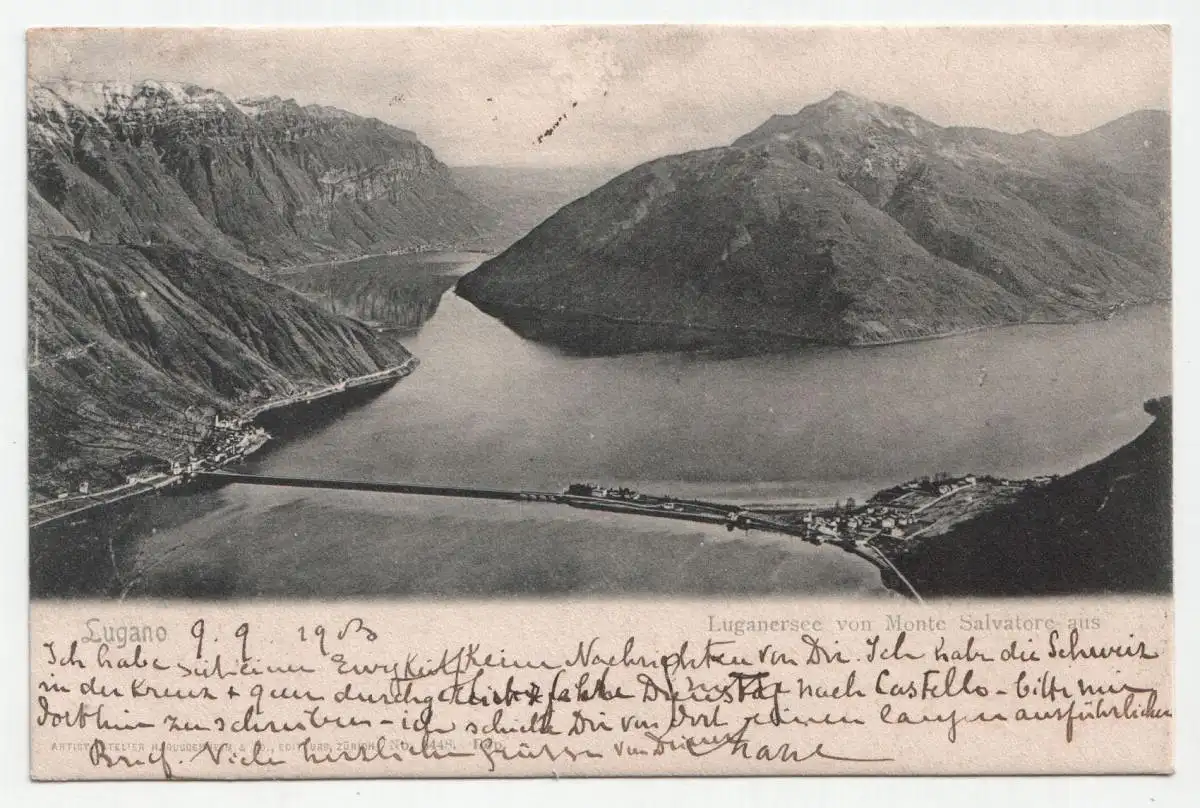 Lugano 9. 9. 1903
Luganersee von Monte Salvatore aus
Ich habe seit einer Ewigkeit keine Nachrichten von Dir. Ich habe die Schweiz
in der Kreuz + quer durchgereist & fahre Dienstag nach Castello - bitte mir
dorthin zu schreiben - ich schicke Dir von dort einen langen ausführlichen
ARTIST. ATELIER H. GUGGENHEIM & CO., EDITEURS, ZÜRICH. No. 3448. Dep.
Brief. Viele herzliche Grüsse von Deinem